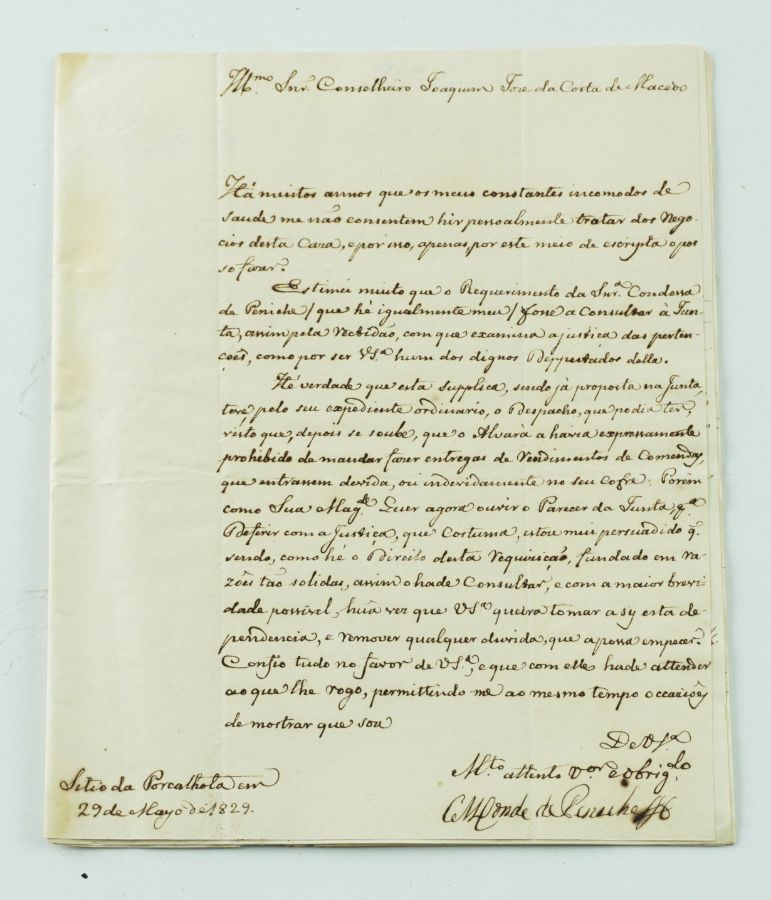 Illmo. Snr. Conselheiro Joaquim Joze da Costa de Macedo
Há muitos annos que os meus constantes incomodos de
saude me não consentem hir pessoalmente tratar dos Nego-
cios desta Caza, e por isso, apenas, por este meio de escripta o pos
so fazer.
Estimei muito que o Requerimento da Snr.a Condessa
de Peniche / que hé igualmente meu / fosse a Consultar à Jun-
ta, assim pela rectidão, com que examina a justiça das perten-
ções, como por ser V.S.a hum dos dignos Depputados della.
Hé verdade que esta supplica, sendo já proposta na Junta,
teve, pelo seu expediente ordinario, o Despacho, que podia ter,
visto que, depois se soube, que o Alvará a havia expressamente
prohibido de mandar fazer entregas de Rendimentos de Comendas,
que entrassem devida, ou indevidamente no seu Cofre. Porem
como Sua Mag.de Quer agora ouvir o Parecer da Junta, p.a
Deferir com a Justiça, que Costuma, estou mui persuadido q.
sendo, como hé o Direito desta requizição, fundado em ra-
zões tão solidas, assim o hade Consultar, e com a maior brevi
dade possivel, huã vez que V.S.a queira tomar a sy esta de-
pendencia, e remover qualquer duvida, que a possa empecer.
Confio tudo no favor de V.S.a, e que com elle hade attender
ao que lhe rogo, permittindo-me ao mesmo tempo occaziões
de mostrar que sou
De V.S.a
M.to attento V.or e obrig.do
Sitio da Porcalhota em
29 de Mayo de 1829.
Conde de Peniche